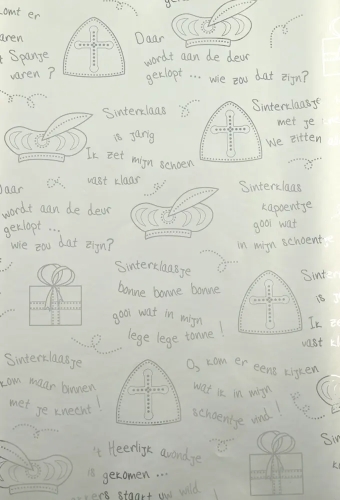 komt er
Spanje
varen ?
Daar
wordt aan de deur
geklopt ... wie zou dat zijn?
Sinterklaas
is jarig
Ik zet mijn schoen
vast klaar
Sinterklaasje
met je
We zitten
Daar
wordt aan de deur
geklopt ...
wie zou dat zijn?
Sinterklaas
kapoentje
gooi wat
in mijn schoentje
Sinterklaasje
bonne bonne bonne
gooi wat in mijn
lege lege tonne !
Sint
is
Ik
vast
Sinterklaasje
kom maar binnen
met je knecht !
O, kom er eens kijken
wat ik in mijn
schoentje vind !
't Heerlijk avondje
is gekomen ...
staart uw